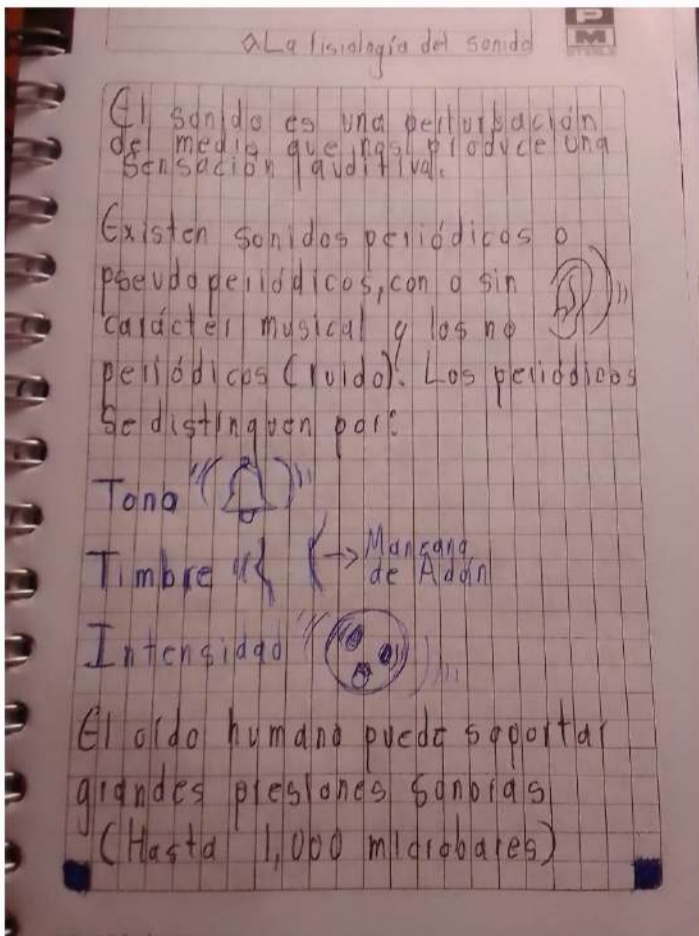 P
M
a La fisiología del sonido
El sonido es una perturbación
del medio que nos produce una
sensación auditiva.
Existen sonidos periódicos o
pseudoperiódicos, con o sin
carácter musical y los no
periódicos (ruido). Los periódicos
se distinguen por:
Tono
Timbre → Manzana
de Adán
Intensidad
El oído humano puede soportar
grandes presiones sonoras
(Hasta 1,000 microbares)